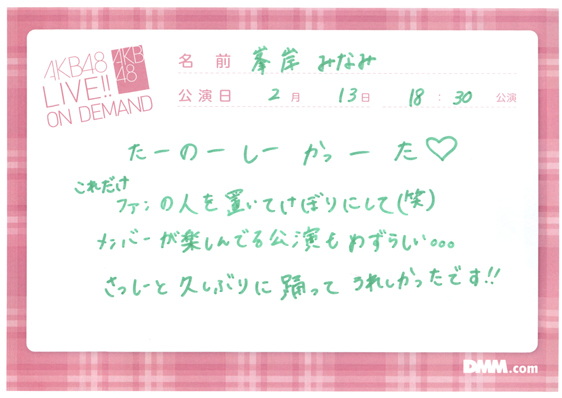 AKB48
LIVE!!
ON DEMAND
AKB
48
名前 峯岸 みなみ
公演日 2月 13日 18:30 公演
たーのーしー かっーた♡
これだけ
ファンの人を置いてけぼりにして(笑)
メンバーが楽しんでる公演もめずらしい...
さっしーと久しぶりに踊って うれしかったです!!
DMM.com